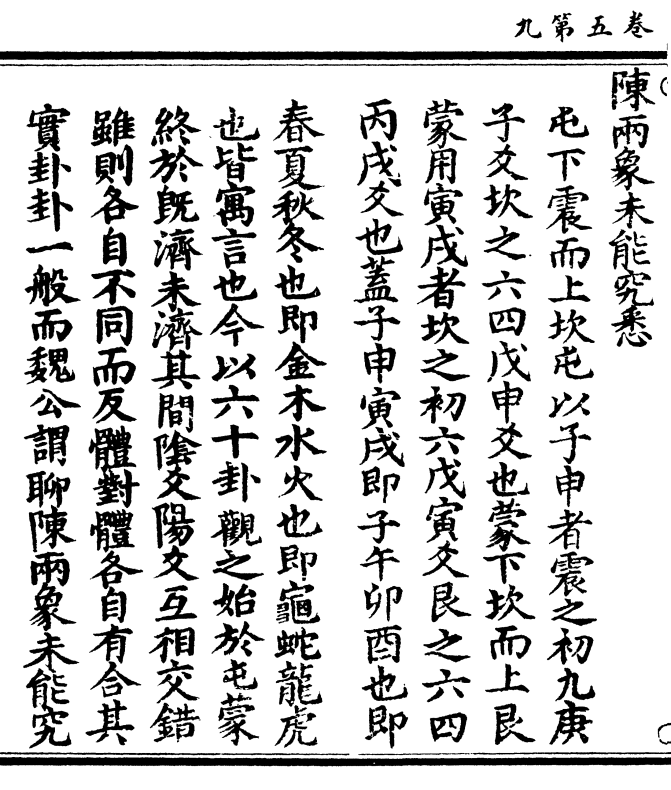 九第五卷
陳兩象未能究悉
屯下震而上坎屯以子申者震之初九庚
子爻坎之六四戊申爻也蒙下坎而上艮
蒙用寅戌者坎之初六戊寅爻艮之六四
丙戌爻也蓋子申寅戌即子午卯酉也即
春夏秋冬也即金木水火也即龜蛇龍虎
也皆寓言也今以六十卦觀之始於屯蒙
終於既濟未濟其間陰爻陽爻互相交錯
雖則各自不同而反體對體各自有合其
實卦卦一般而魏公謂聊陳兩象未能究